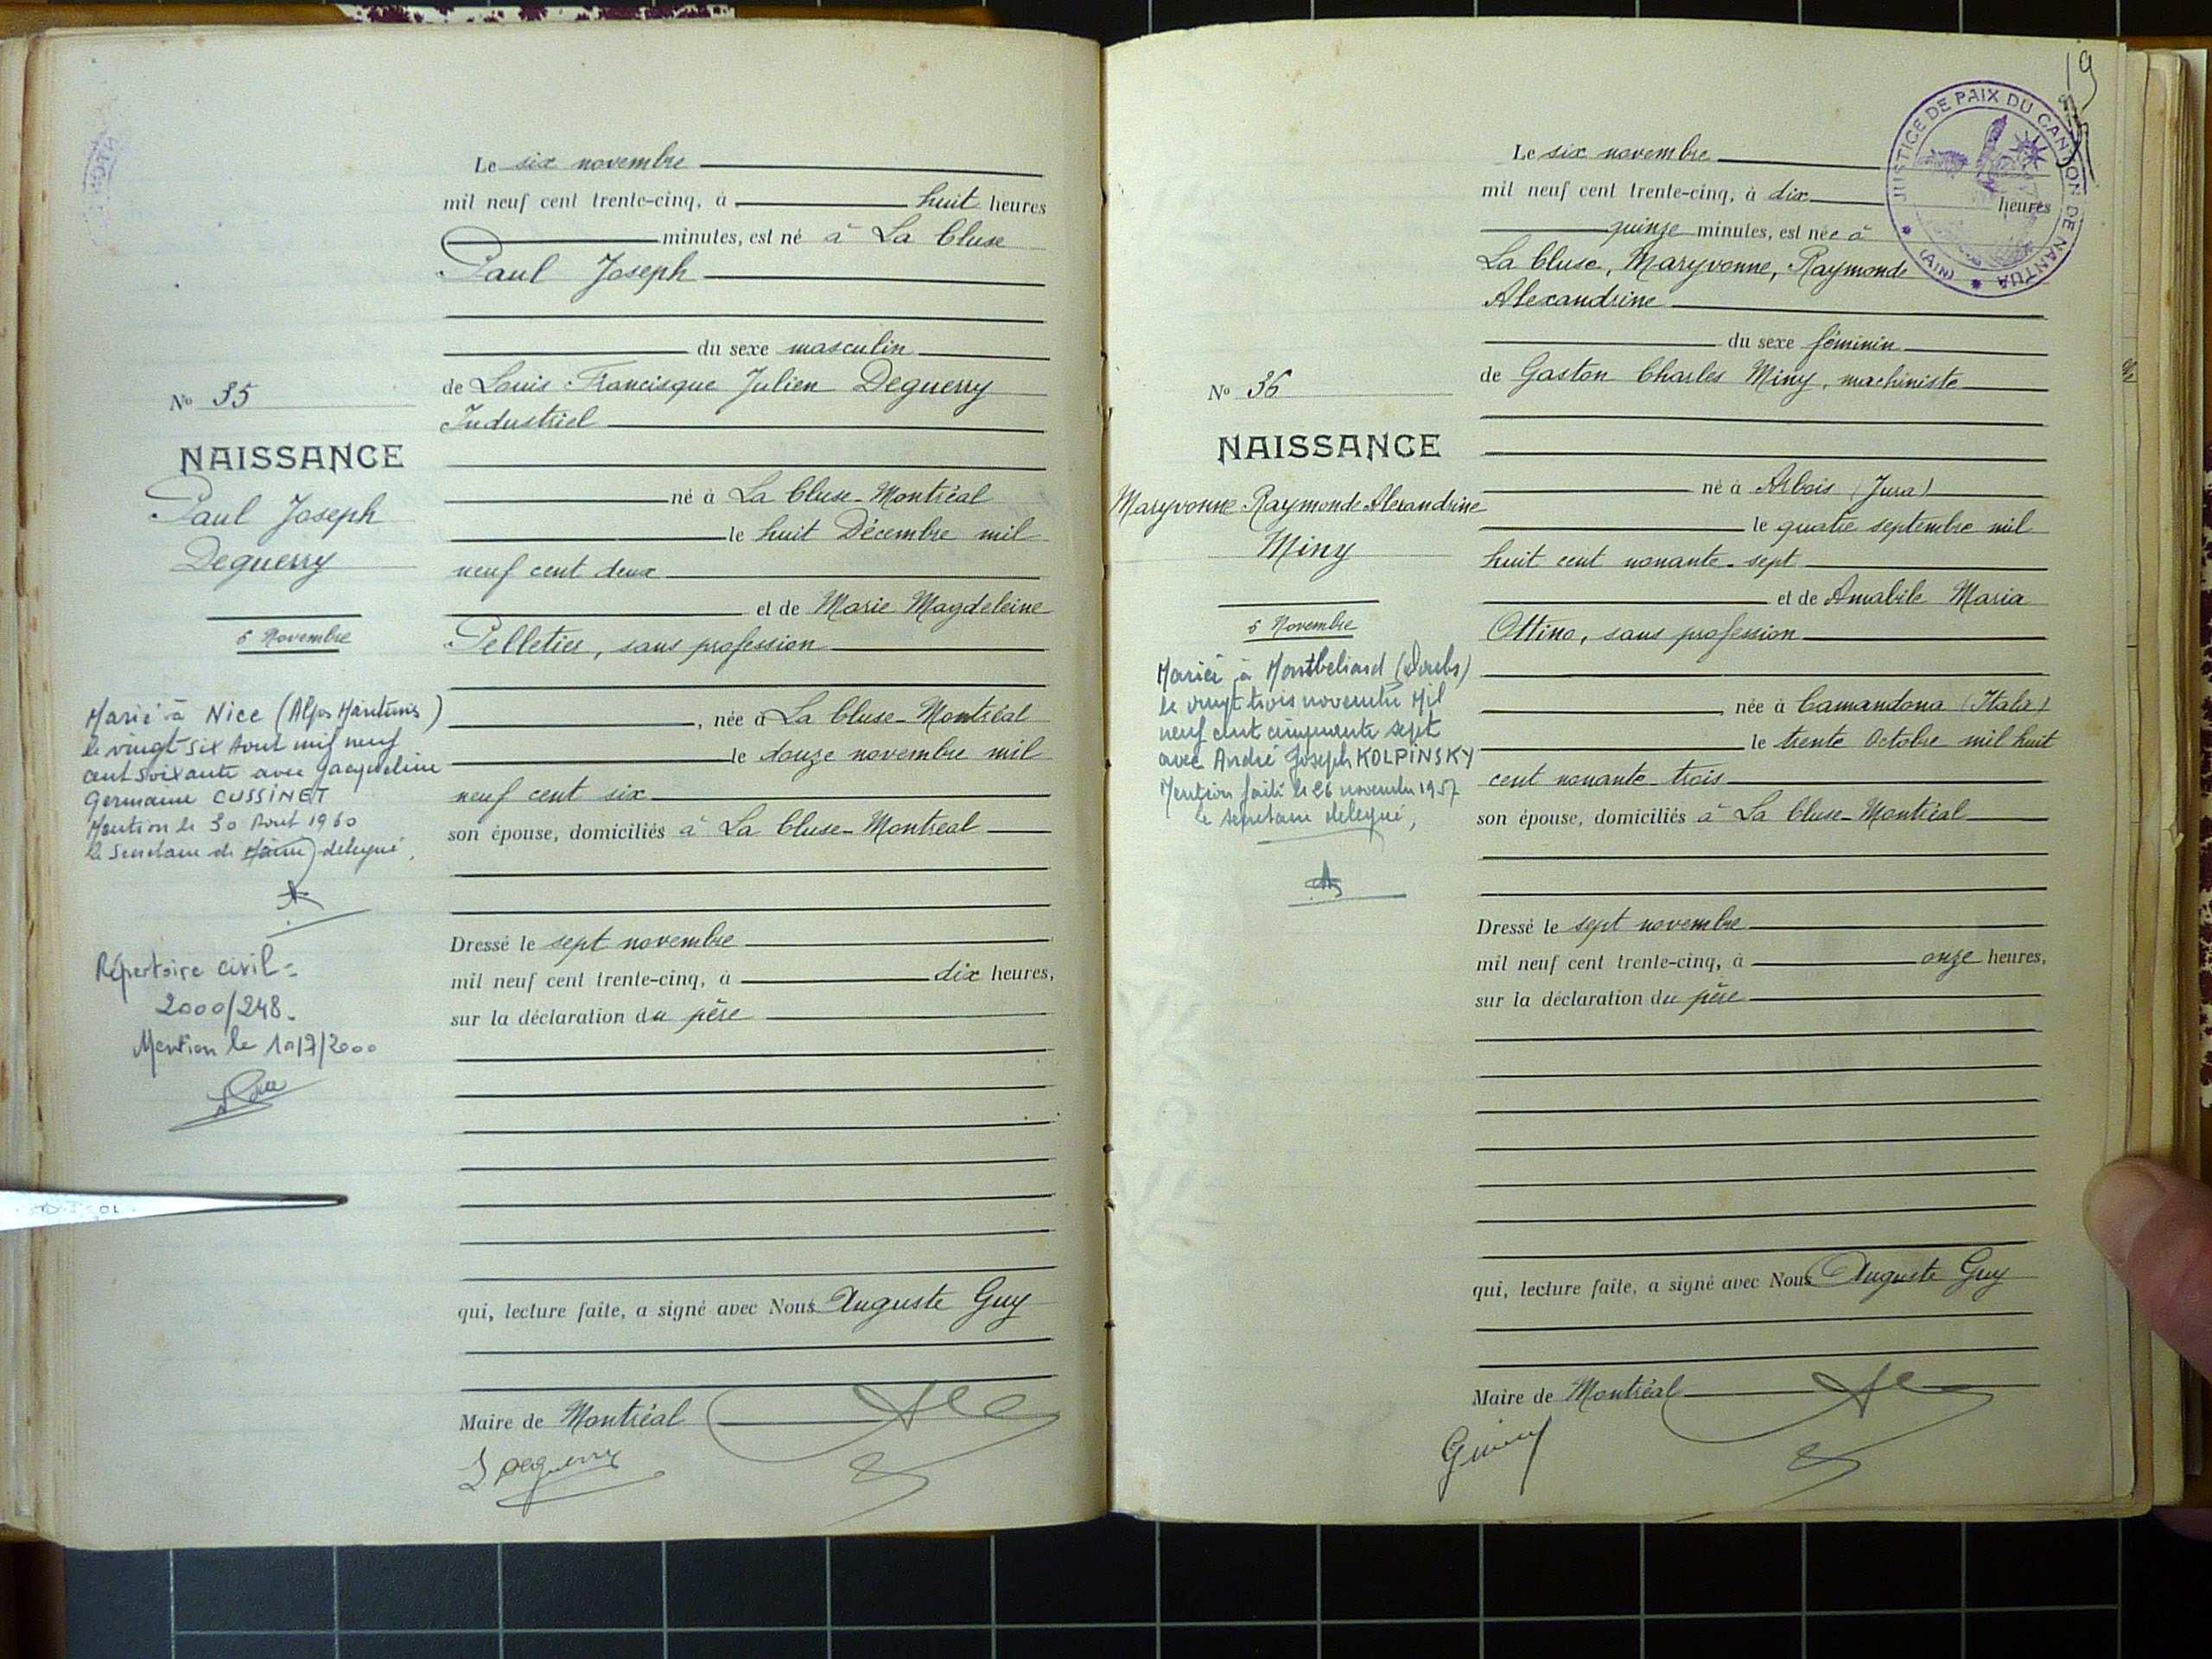 Le six novembre
mil neuf cent trente-cinq, à huit heures
minutes, est né à La Cluse
Paul Joseph
du sexe masculin
de Louis Francisque Julien Deguerry
Industriel
né à La Cluse-Montréal
le huit Décembre mil
neuf cent deux
et de Marie Magdeleine
Pelletier, sans profession
, née à La Cluse-Montréal
le douze novembre mil
neuf cent six
son épouse, domiciliés à La Cluse-Montréal
Dressé le sept novembre
mil neuf cent trente-cinq, à dix heures,
sur la déclaration du père
qui, lecture faite, a signé avec Nous Auguste Guy
Maire de Montréal
L Deguerry
No 35
NAISSANCE
Paul Joseph
Deguerry
6 Novembre
Marié à Nice (Alpes Maritimes)
le vingt six Aout mil neuf
cent soixante avec Jacqueline
Germaine CUSSINET
Mention le 30 Aout 1960
le Secrétaire de Mairie délégué,
Répertoire civil =
2000/248.
Mention le 10/7/2000
19
JUSTICE DE PAIX DU CANTON DE NANTUA
(AIN)
Le six novembre
mil neuf cent trente-cinq, à dix heures
quinze minutes, est née à
La Cluse, Maryvonne, Raymonde
Alexandrine
du sexe féminin
de Gaston Charles Miny, machiniste
né à Arbois (Jura)
le quatre septembre mil
huit cent nonante-sept
et de Amabile Maria
Ottino, sans profession
, née à Camandona (Itala)
le trente Octobre mil huit
cent nonante trois
son épouse, domiciliés à La Cluse-Montréal
Dressé le sept novembre
mil neuf cent trente-cinq, à onze heures,
sur la déclaration du père
qui, lecture faite, a signé avec Nous Auguste Guy
Maire de Montréal
No 36
NAISSANCE
Maryvonne Raymonde Alexandrine
Miny
6 Novembre
Mariée à Montbeliard (Doubs)
le vingt trois novembre Mil
neuf cent cinquante sept
avec André Joseph KOLPINSKY
Mention faite le 26 novembre 1957
le secretaire délégué,